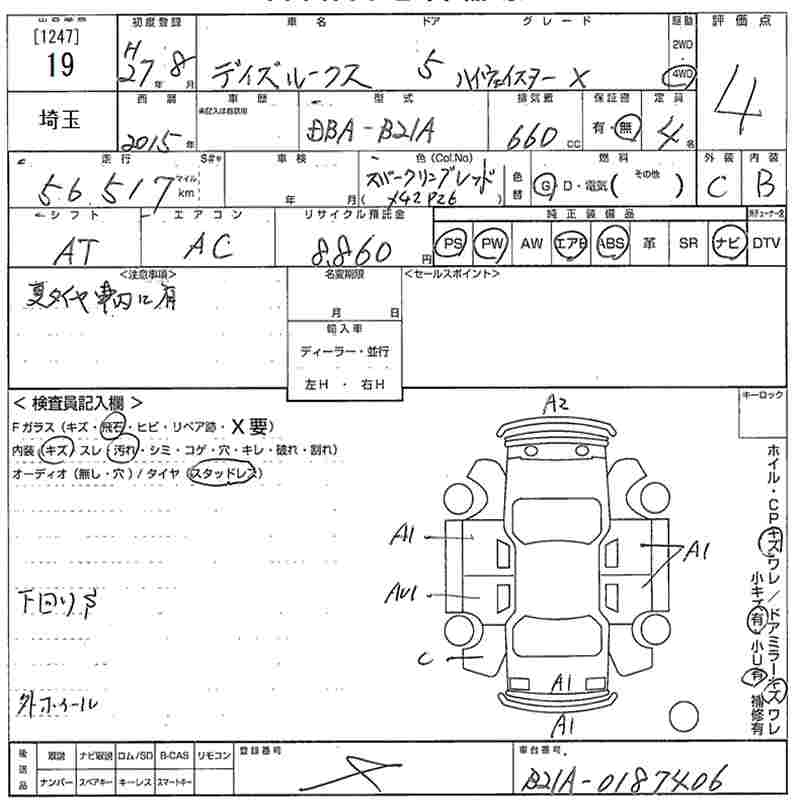 [1247]
19
初度登録
H
27年 8月
車名
デイズルークス
ドア
5
グレード
ハイウェイスター X
駆動
2WD
4WD
評価点
4
埼玉
西暦
2015年
車歴
未記入は自家用
型式
DBA-B21A
排気量
660cc
保証書
有・無
定員
4名
走行
56,517
マイル
km
S#*
車検
年 月
色(Col.No)
スパークリングレッド
( X42P26 )
色替
燃料
G・D・電気( その他 )
外装
C
内装
B
シフト
AT
エアコン
AC
リサイクル預託金
8,860円
純正装備品
PS PW AW エアB ABS 革 SR ナビ DTV
<注意事項>
夏タイヤ車内に有
名変期限
月 日
輸入車
ディーラー・並行
左H・右H
<セールスポイント>
<検査員記入欄>
Fガラス(キズ・飛石・ヒビ・リペア跡・X要)
内装(キズ)スレ・汚れ・シミ・コゲ・穴・キレ・破れ・割れ)
オーディオ(無し・穴)/タイヤ(スタッドレス)
下回りS
外ホイール
キーロック
A2
A1
A1
AU1
C
A1
A1
ホイル・CPキズワレ/ドアミラーキズワレ
小キズ有 小U有 補修有
後送品
取説 ナビ取説 ロム/SD B-CAS リモコン
ナンバー スペアキー キーレス スマートキー
登録番号
車台番号
B21A-0187406